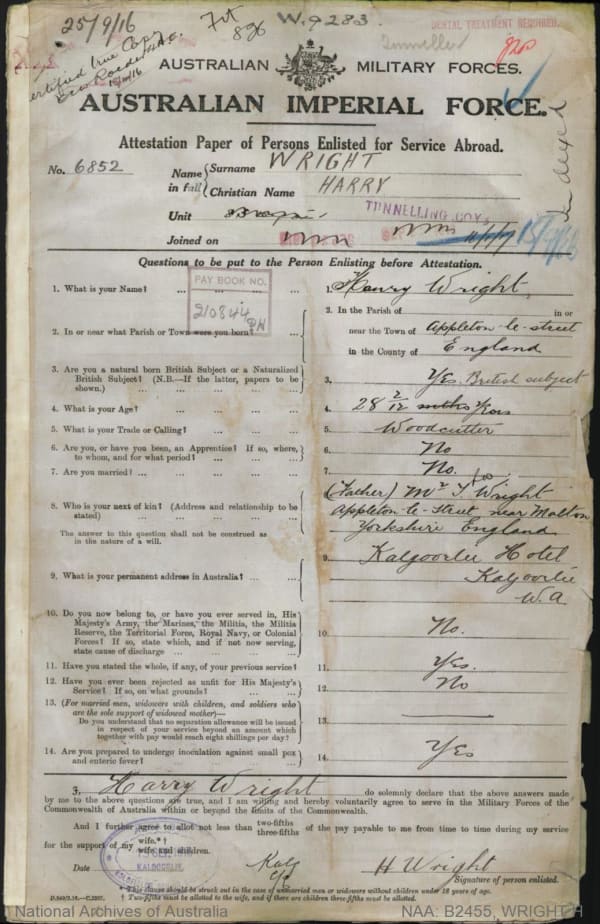 25/9/16
Fit
896
W.9283.
DENTAL TREATMENT REQUIRED.
Tunneller
Certified true Copy
AUSTRALIAN MILITARY FORCES.
AUSTRALIAN IMPERIAL FORCE.
Indexed
Attestation Paper of Persons Enlisted for Service Abroad.
No. 6852
Name in full
Surname WRIGHT
Christian Name HARRY
Unit TUNNELLING COYS
Joined on
Questions to be put to the Person Enlisting before Attestation.
PAY BOOK NO.
210844
1. What is your Name? ... 1. Harry Wright
2. In or near what Parish or Town were you born? ... 2. In the Parish of in or
near the Town of Appleton-le-street
in the County of England
3. Are you a natural born British Subject or a Naturalized
British Subject? (N.B.—If the latter, papers to be
shown.) ... 3. Yes. British subject
4. What is your Age? ... 4. 28 2/12 mths Years
5. What is your Trade or Calling? ... 5. Woodcutter
6. Are you, or have you been, an Apprentice? If so, where,
to whom, and for what period? ... 6. No
7. Are you married? ... 7. No.
8. Who is your next of kin? (Address and relationship to be
stated) ... 8. (Father) Mr T. Wright
Appleton-le-Street, near Malton
Yorkshire England
The answer to this question shall not be construed as
in the nature of a will.
9. What is your permanent address in Australia? ... 9. Kalgoorlie Hotel
Kalgoorlie
W.A
10. Do you now belong to, or have you ever served in, His
Majesty's Army, the Marines, the Militia, the Militia
Reserve, the Territorial Force, Royal Navy, or Colonial
Forces? If so, state which, and if not now serving,
state cause of discharge ... 10. No.
11. Have you stated the whole, if any, of your previous service? 11. Yes.
12. Have you ever been rejected as unfit for His Majesty's
Service? If so, on what grounds? ... 12. No
13. (For married men, widowers with children, and soldiers who
are the sole support of widowed mother)—
Do you understand that no separation allowance will be issued
in respect of your service beyond an amount which
together with pay would reach eight shillings per day? ... 13.
14. Are you prepared to undergo inoculation against small pox
and enteric fever? ... 14. Yes
I, Harry Wright do solemnly declare that the above answers made
by me to the above questions are true, and I am willing and hereby voluntarily agree to serve in the Military Forces of the
Commonwealth of Australia within or beyond the limits of the Commonwealth.
And I further agree to allot not less than two-fifths three-fifths of the pay payable to me from time to time during my service
for the support of my wife.*†
wife and children.
KALGOORLIE.
Date Kalg H Wright
Signature of person enlisted.
* This clause should be struck out in the case of unmarried men or widowers without children under 18 years of age.
† Two-fifths must be allotted to the wife, and if there are children three-fifths must be allotted.
National Archives of Australia
NAA: B2455, WRIGHT H